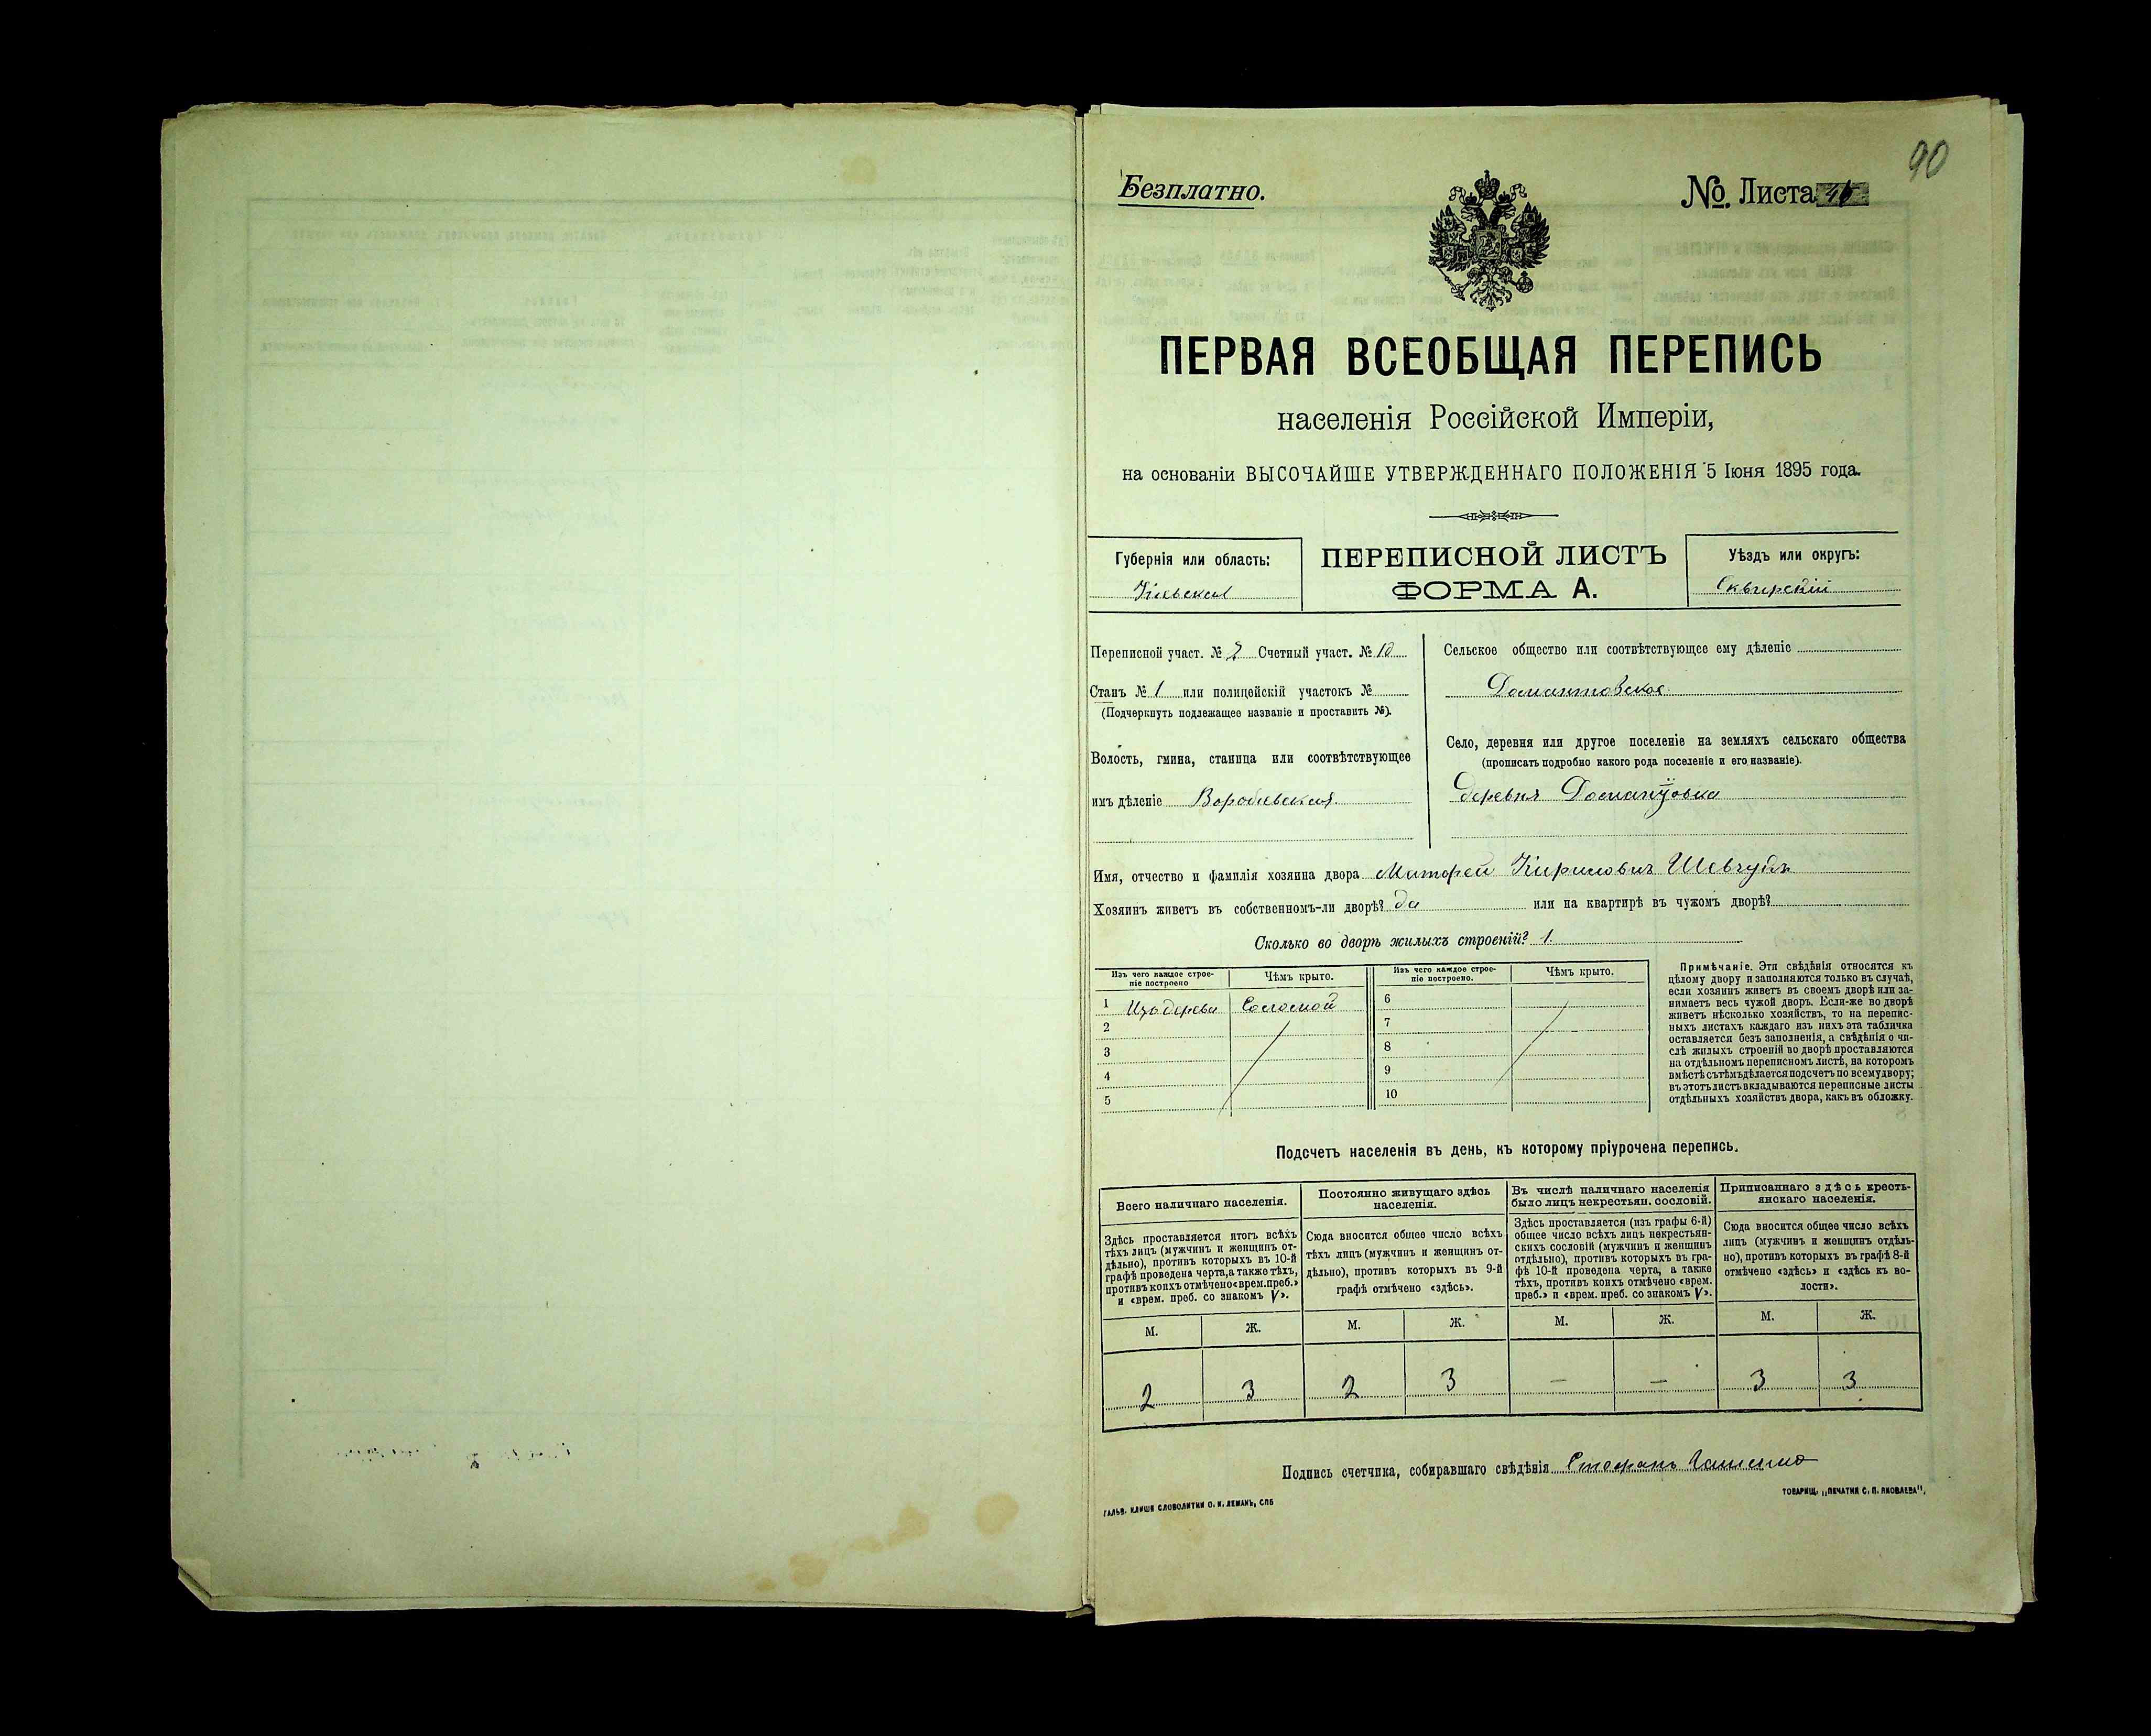 90
Безплатно.
№ Листа
ПЕРВАЯ ВСЕОБЩАЯ ПЕРЕПИСЬ
населенія Россійской Имперіи,
на основаніи ВЫСОЧАЙШЕ УТВЕРЖДЕННАГО ПОЛОЖЕНІЯ 5 Іюня 1895 года.
Губернія или область:
Кіевская
ПЕРЕПИСНОЙ ЛИСТЪ
ФОРМА А.
Уѣздъ или округъ:
Сквирскій
Переписной участ. № 2 Счетный участ. № 10
Станъ № 1 или полицейскій участокъ №
(Подчеркнуть подлежащее названіе и проставить №).
Волость, гмина, станица или соотвѣтствующее
имъ дѣленіе
Сельское общество или соотвѣтствующее ему дѣленіе
Домантовское
Село, деревня или другое поселеніе на земляхъ сельскаго общества
(прописать подробно какого рода поселеніе и его названіе).
деревня
Имя, отчество и фамилія хозяина двора Кириловъ Шевчукъ
Хозяинъ живетъ въ собственномъ-ли дворѣ? да или на квартирѣ въ чужомъ дворѣ?
Сколько во дворѣ жилыхъ строеній? 1.
Изъ чего каждое строе-
ніе построено
Чѣмъ крыто.
1 Изъ дерева Соломой
2
3
4
5
Изъ чего каждое строе-
ніе построено.
Чѣмъ крыто.
6
7
8
9
10
Примѣчаніе. Эти свѣдѣнія относятся къ
цѣлому двору и заполняются только въ случаѣ,
если хозяинъ живетъ въ своемъ дворѣ или за-
нимаетъ весь чужой дворъ. Если-же во дворѣ
живетъ нѣсколько хозяйствъ, то на перепис-
ныхъ листахъ каждаго изъ нихъ эта табличка
оставляется безъ заполненія, а свѣдѣнія о чи-
слѣ жилыхъ строеній во дворѣ проставляются
на отдѣльномъ переписномъ листѣ, на которомъ
вмѣстѣ съ тѣмъ дѣлается подсчетъ по всему двору;
въ этотъ листъ вкладываются переписные листы
отдѣльныхъ хозяйствъ двора, какъ въ обложку.
Подсчетъ населенія въ день, къ которому пріурочена перепись.
Всего наличнаго населенія.
Здѣсь проставляется итогъ всѣхъ
тѣхъ лицъ (мужчинъ и женщинъ от-
дѣльно), противъ которыхъ въ 10-й
графѣ проведена черта, а также тѣхъ,
противъ коихъ отмѣчено «врем. преб.»
и «врем. преб. со знакомъ V».
М. Ж.
2 3
Постоянно живущаго здѣсь
населенія.
Сюда вносится общее число всѣхъ
тѣхъ лицъ (мужчинъ и женщинъ от-
дѣльно), противъ которыхъ въ 9-й
графѣ отмѣчено «здѣсь».
М. Ж.
2 3
Въ числѣ наличнаго населенія
было лицъ некрестьян. сословій.
Здѣсь проставляется (изъ графы 6-й)
общее число всѣхъ лицъ некрестьян-
скихъ сословій (мужчинъ и женщинъ
отдѣльно), противъ которыхъ въ гра-
фѣ 10-й проведена черта, а также
тѣхъ, противъ коихъ отмѣчено «врем.
преб.» и «врем. преб. со знакомъ V».
М. Ж.
— —
Приписаннаго здѣсь кресть-
янскаго населенія.
Сюда вносится общее число всѣхъ
лицъ (мужчинъ и женщинъ отдѣль-
но), противъ которыхъ въ графѣ 8-й
отмѣчено «здѣсь» и «здѣсь къ во-
лости».
М. Ж.
3 3
Подпись счетчика, собиравшаго свѣдѣнія
ГАЛЬВ. КЛИШЕ СЛОВОЛИТНИ О. И. ЛЕМАНЪ, СПБ
ТОВАРИЩ. „ПЕЧАТНИ С. П. ЯКОВЛЕВА".